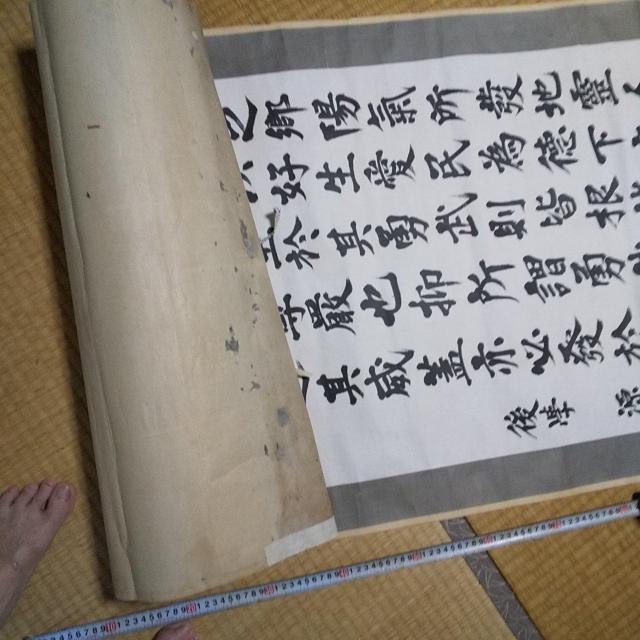 之鄉陽氣所發地靈
好生愛民為德下
於其勇武則皆根
嚴也抑所謂勇
其威蓋亦必發於
後學